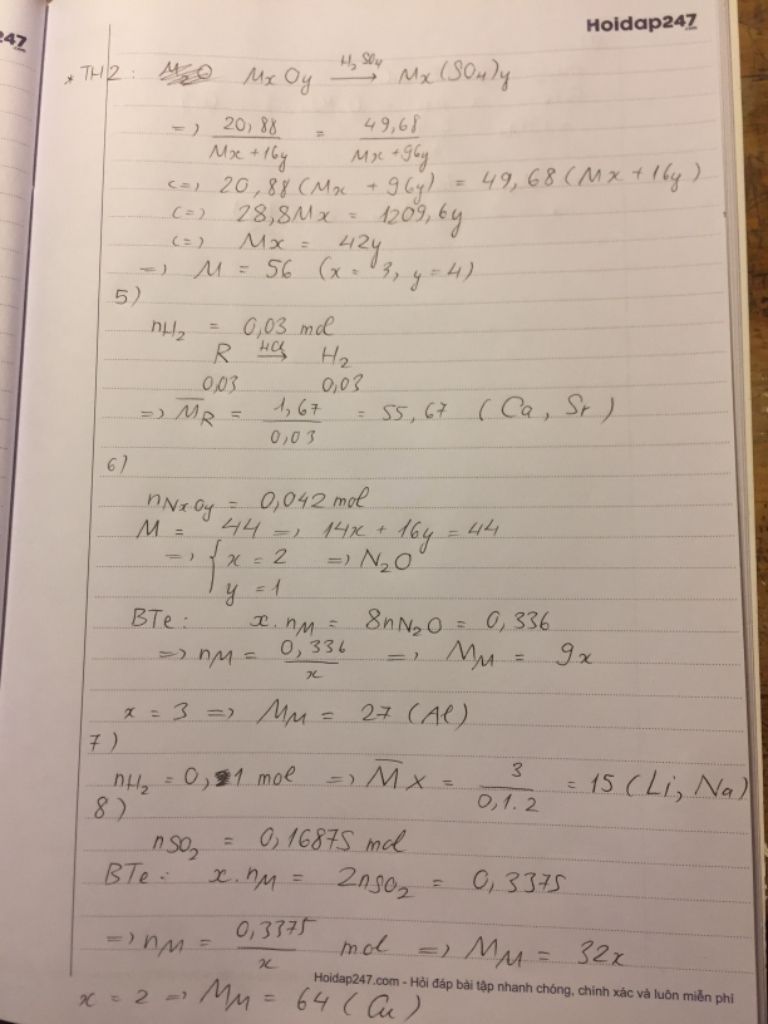 247
Hoidap247
* TH2: MxOy $\xrightarrow{H_2SO_4}$ Mx(SO4)y
=> 20,88 / (Mx + 16y) = 49,68 / (Mx + 96y)
<=> 20,88 (Mx + 96y) = 49,68 (Mx + 16y)
<=> 28,8Mx = 1209,6y
<=> Mx = 42y
=> M = 56 (x = 3, y = 4)
5)
nH2 = 0,03 mol
R $\xrightarrow{HCl}$ H2
0,03 0,03
=> M̅R = 1,67 / 0,03 = 55,67 (Ca, Sr)
6)
nNxOy = 0,042 mol
M = 44 => 14x + 16y = 44
=> { x = 2 => N2O
y = 1
BTe: x.nM = 8nN2O = 0,336
=> nM = 0,336 / x => MM = 9x
x = 3 => MM = 27 (Al)
7)
nH2 = 0,1 mol => M̅X = 3 / 0,1.2 = 15 (Li, Na)
8)
nSO2 = 0,16875 mol
BTe: x.nM = 2nSO2 = 0,3375
=> nM = 0,3375 / x mol => MM = 32x
Hoidap247.com - Hỏi đáp bài tập nhanh chóng, chính xác và luôn miễn phí
x = 2 => MM = 64 (Cu)